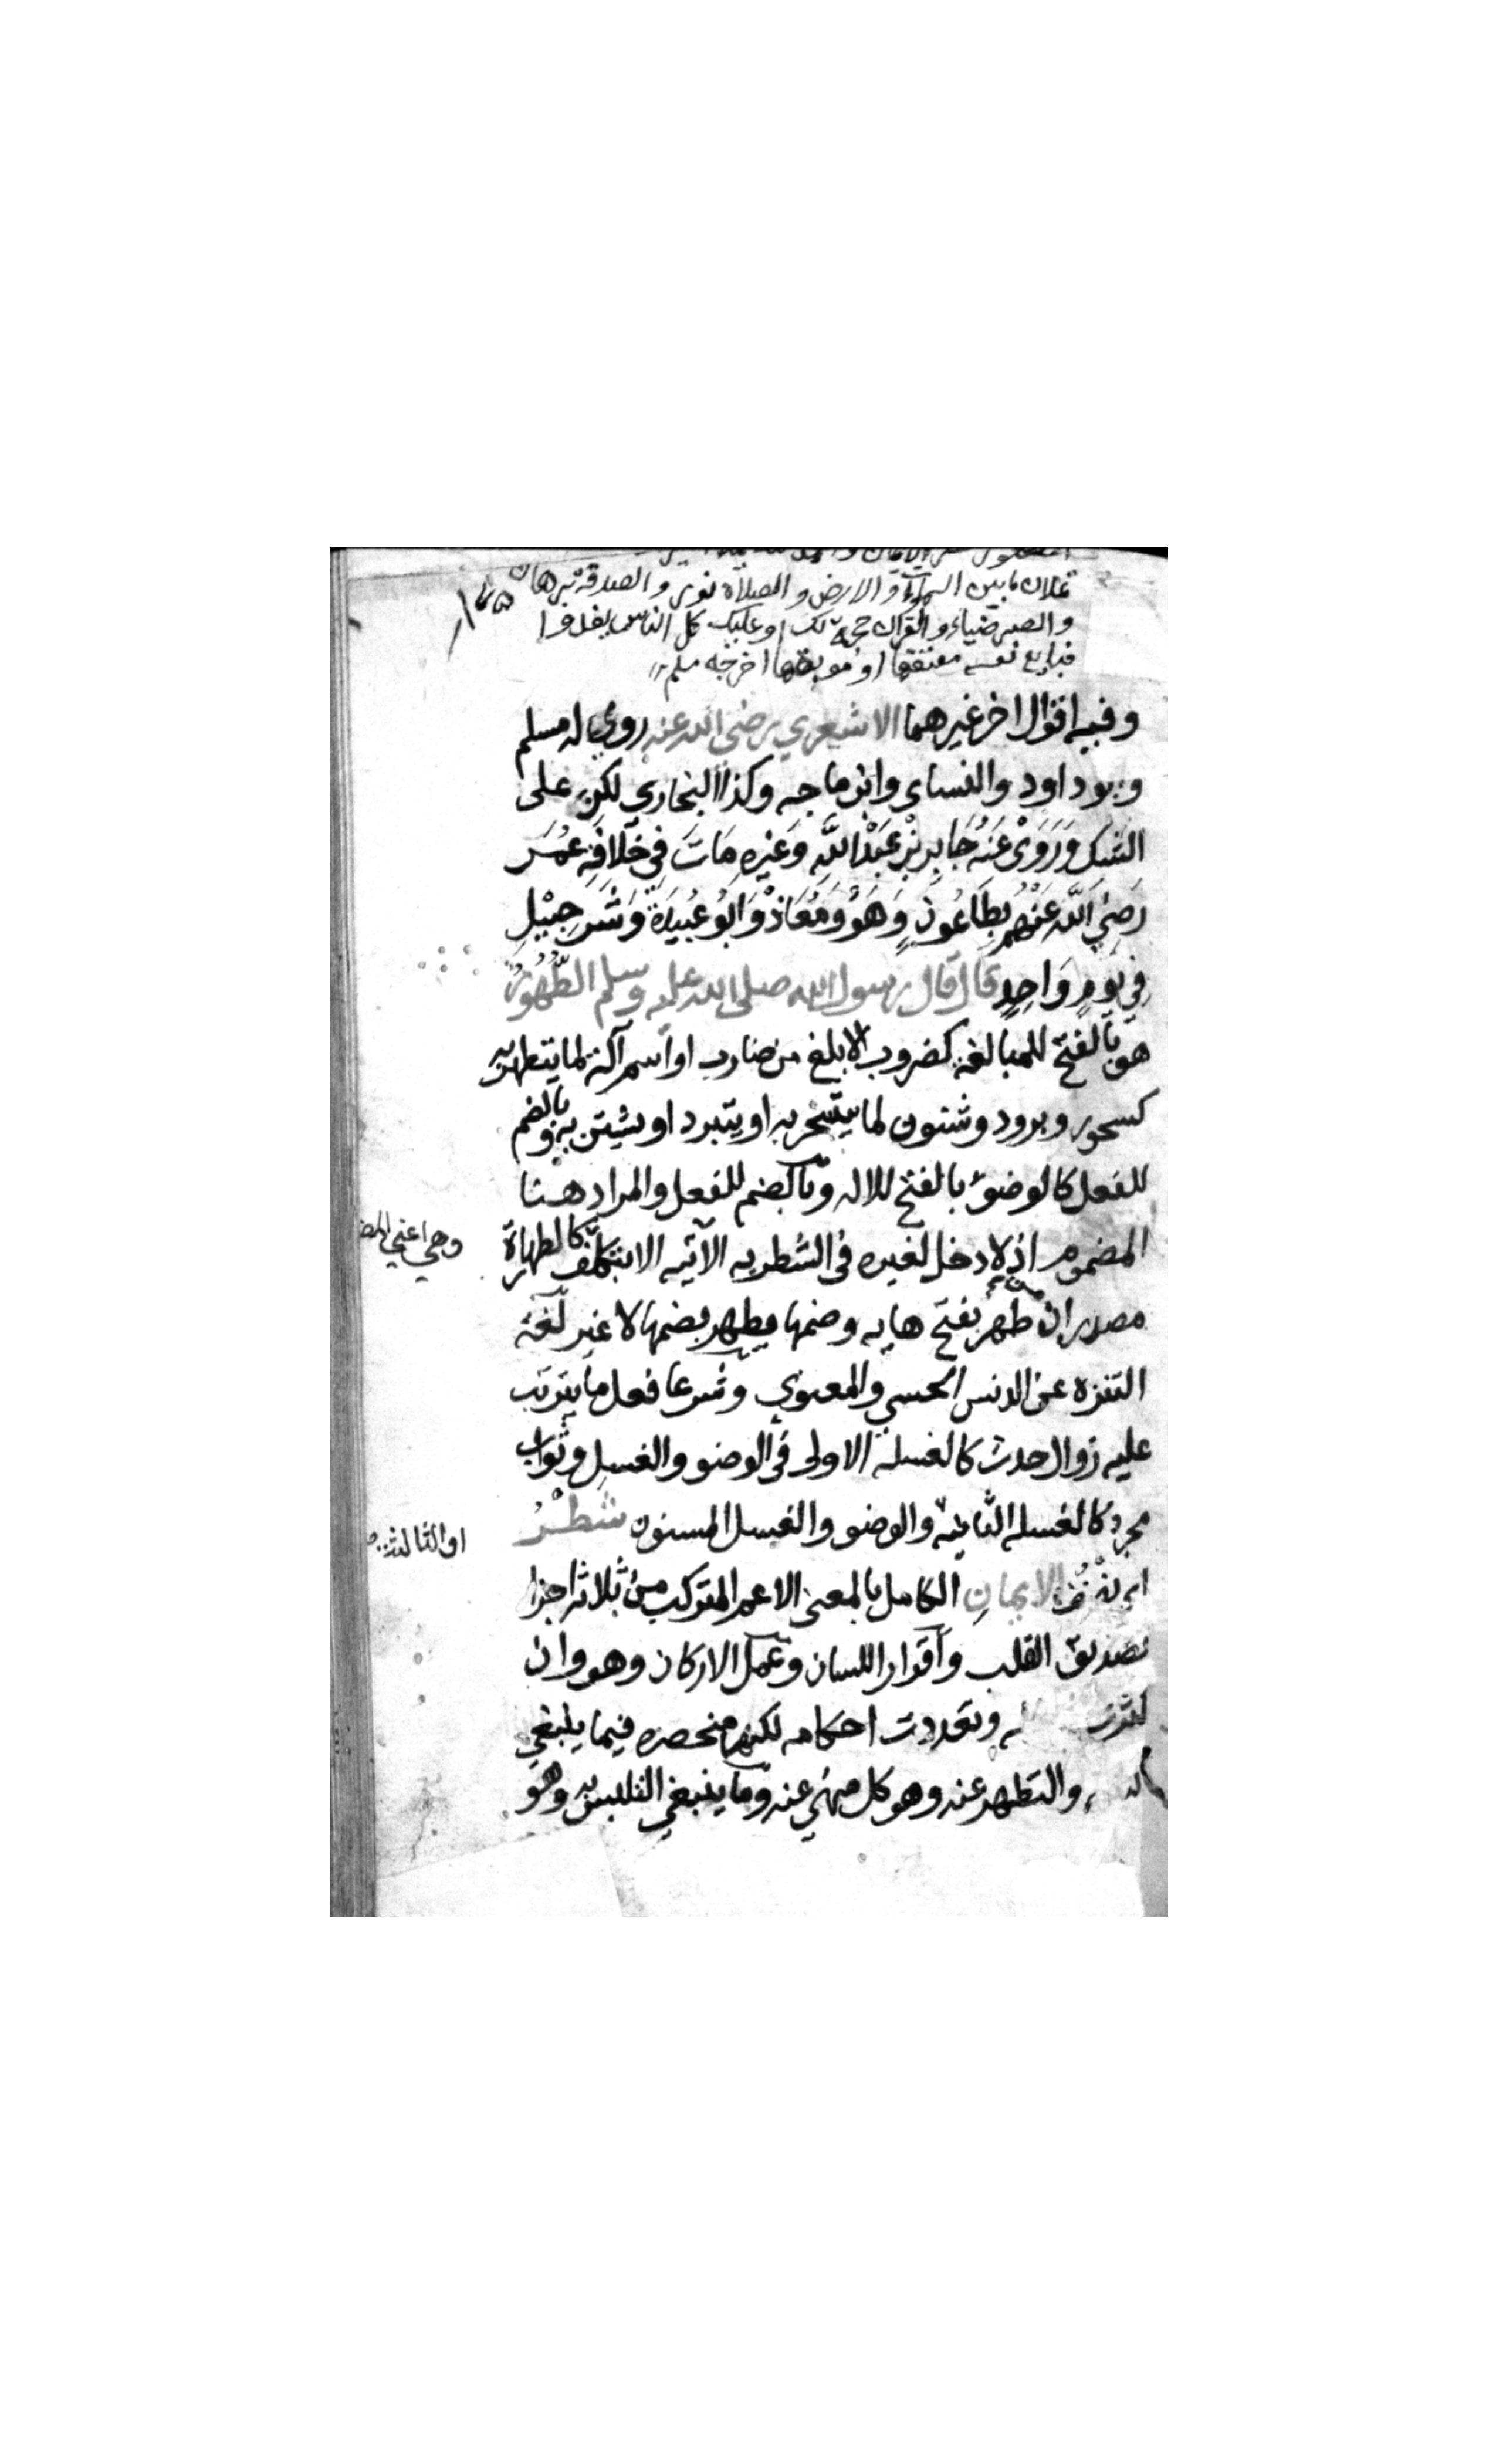 تملان ما بين السموات والارض والصلاة نور والصدقة برهان
والصبر ضياء والقران حجة لك او عليك كل الناس يغدوا
فبايع نفسه معتقها او موبقها اخرجه مسلم
وفيه اقوال اخر غيرهما الاشعري رضي الله عنه روى له مسلم
وبوداود والنساى وابن ماجه وكذا البخاري لكن على
الشك وَرَوَىْ عَنْهُ جَابِر بْن عَبْدُ اللَّهِ وَغَيْرِهِ مَاتَ فِي خَلَافَةِ عُمَرَ
رَضِيَ اللَّه عَنْهُم بِطَاعُونٍ وَهَوُ وَمُعَاذْ وَابُو عُبَيْدَة وَشَرَحِبْيلِ
فِي يَوْمٍ وَاحِدٍ قال قال رسول الله صلى الله عليه وسلم الطُّهُوْرُ
هو بالفتح للمبالغة كضروب الابلغ من ضارب او اسم آلة لما يتطهر به
كسحور وبرود وشنون لما يتسحر به او يتبرد او يشتن به وبالضم
للفعل كالوضوء بالفتح للاله وبالضم للفعل والمراد هنا
المضموم اذ لا دخل لغيره في الشطريه الآتيه الا بتكلف كالطهارة
وهي اعني المض
مصدران من طهر بفتح هايه وضمها يطهر بضمها لا غير لغة
التنزه عن الدنس الحسي والمعنوي وشرعا فعل ما يترتب
عليه زوال حدث كالغسلة الاولى في الوضو والغسل وثواب
مجرد كالغسله الثانيه والوضو والغسل المسنون شطْرُ
او الثالثه
الايمانِ الكامل بالمعنى الاعم المتركب من ثلاثه اجزا
تصديق القلب واقرار اللسان وعمل الاركان وهو وان
كثرت وتعددت احكامه لكنها منحصره فيما ينبغي
والتطهر عنه وهو كل منهي عنه وما ينبغي التلبس به وهو